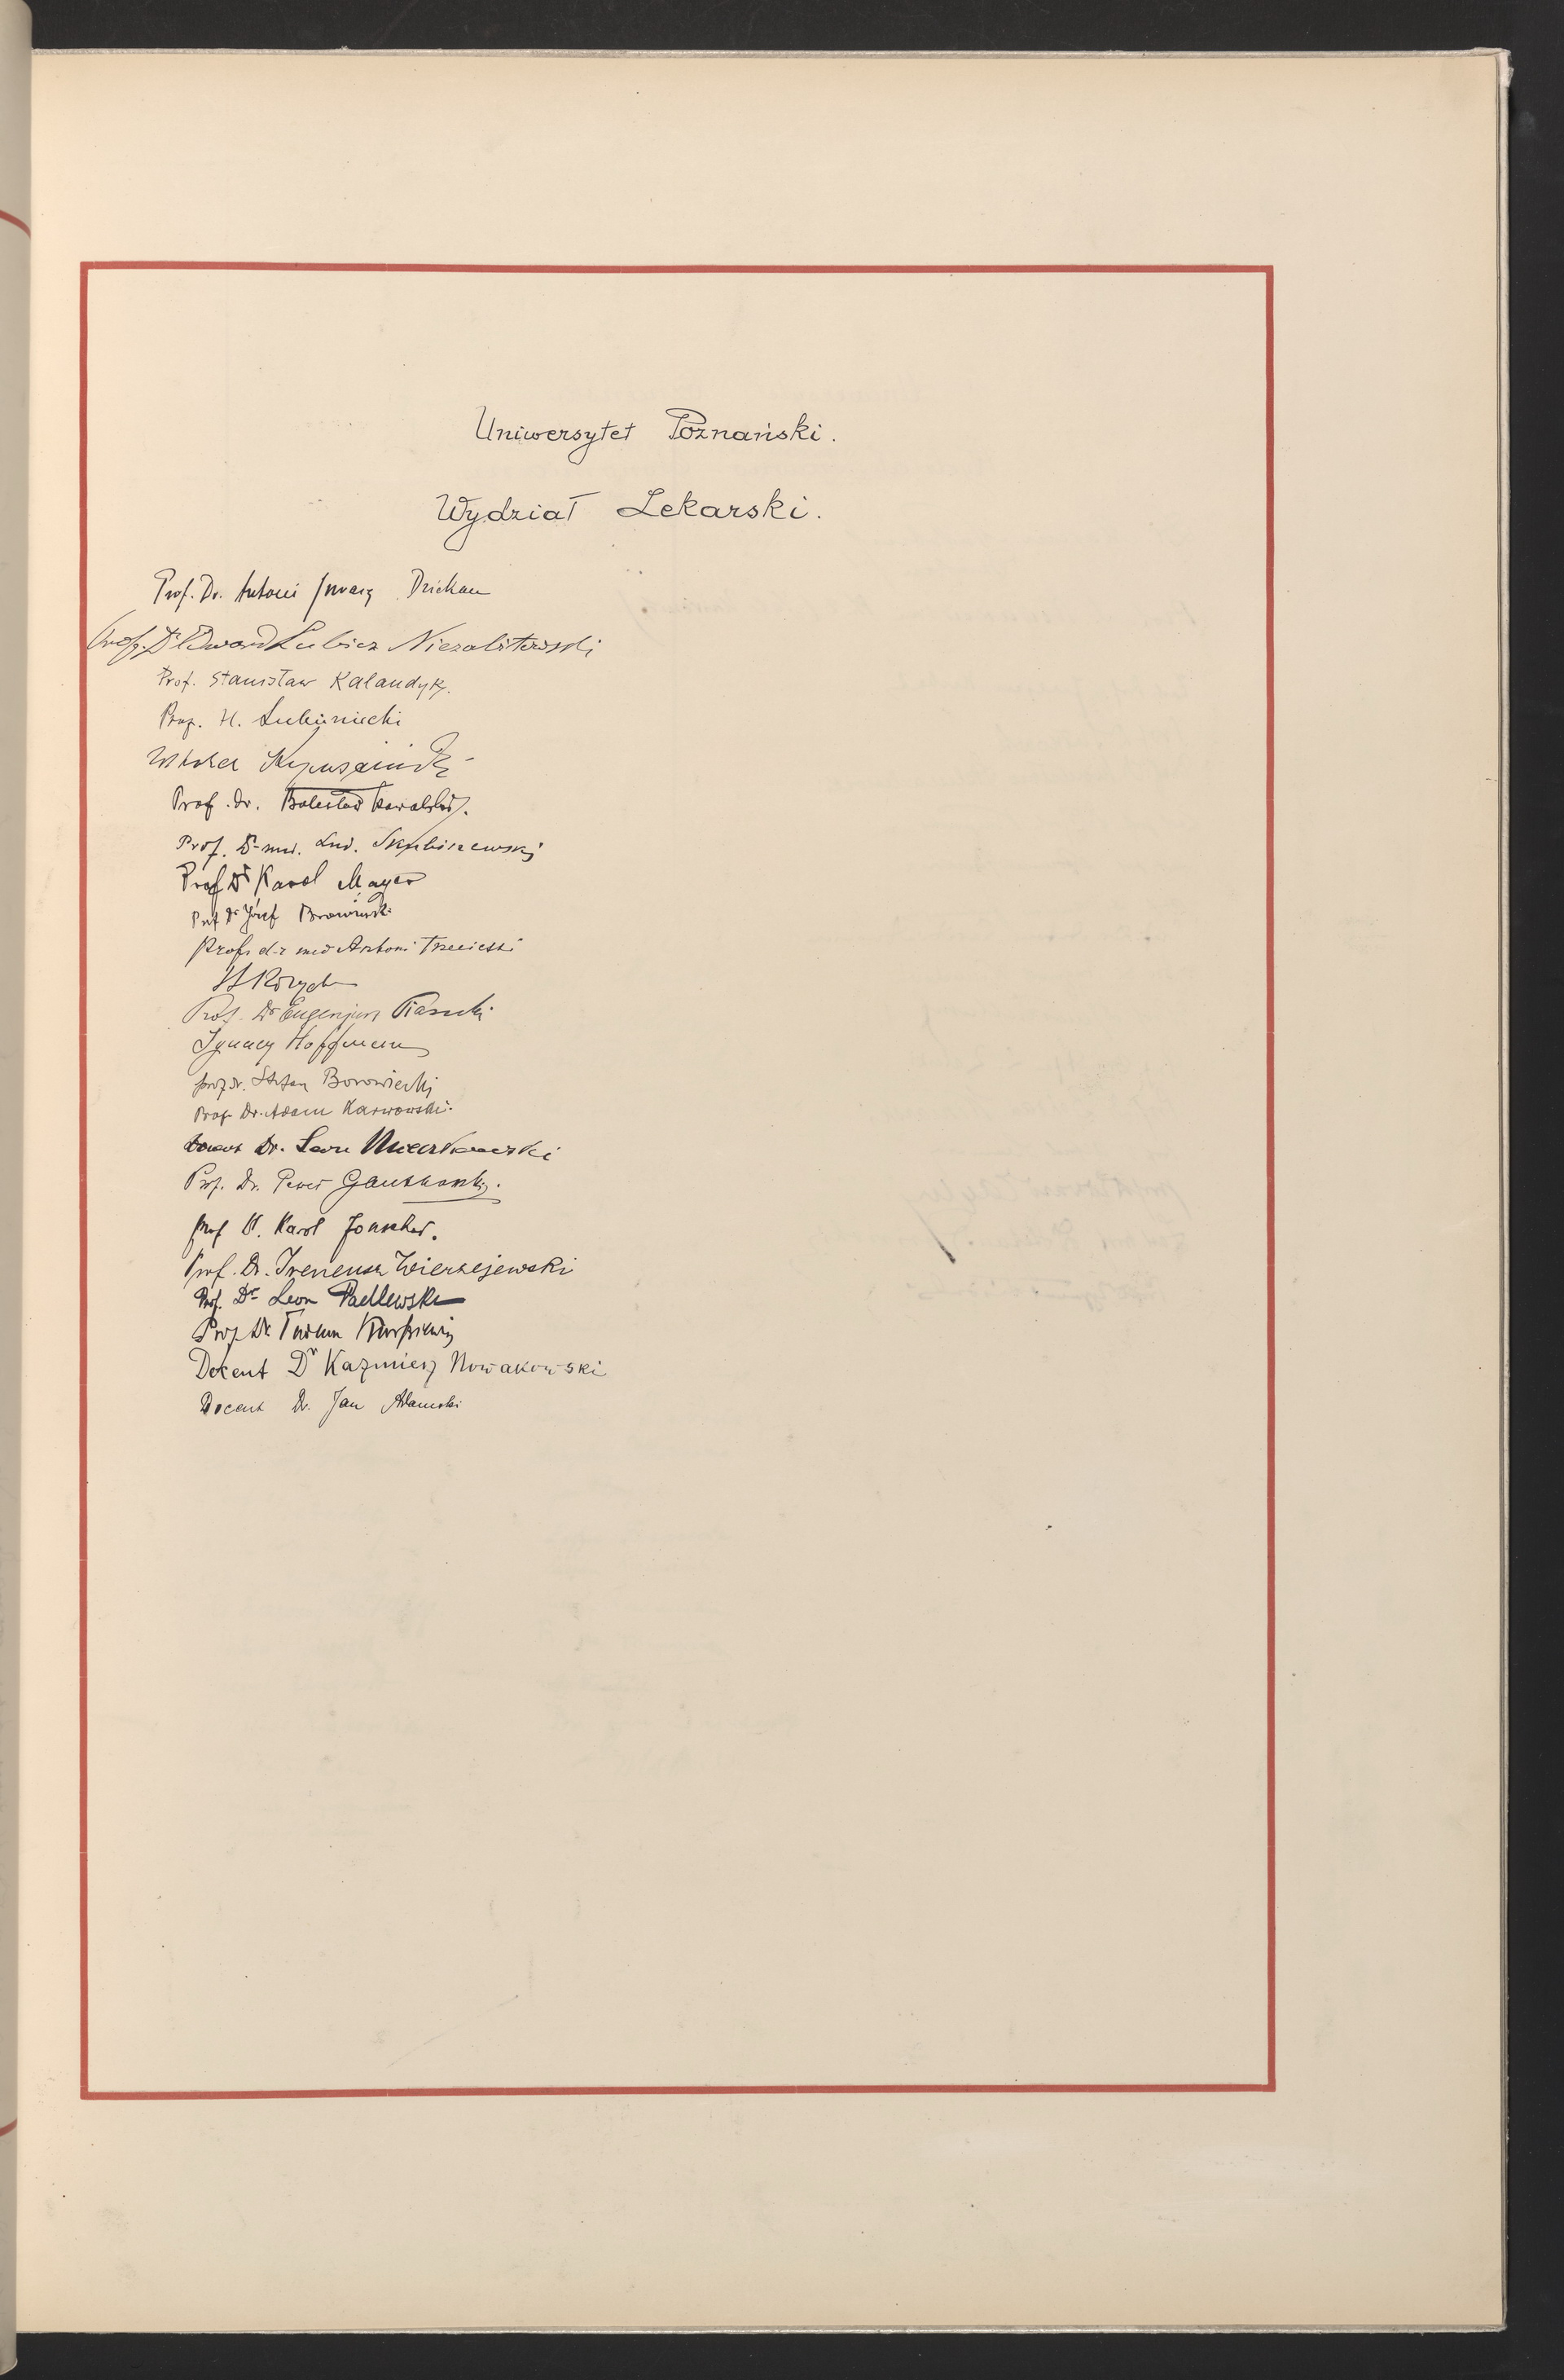 Uniwersytet Poznański.
Wydział Lekarski.
Prof. Dr. Antoni Jurasz Dziekan
Prof. Dr Edward Lubicz Niezabitowski
Prof. Stanisław Kalandyk.
Prof. H. Łubieniecki
Witold Kapuściński
Prof. dr. Bolesław Kowalski.
Prof. Dr med. Lud. Skubiszewski
Prof Dr Karol Mayer
Prof Dr Józef Browiński
Prof. d-r med Antoni Trzecieski
Prof. Dr Eugenjusz Piasecki
Ignacy Hoffmann
prof dr. Stefan Borowiecki
Prof. Dr. Adam Karwowski.
Docent Dr. Leon Mieczkowski
Prof. Dr. Paweł Gantkowski.
Prof D. Karol Jonscher.
Prof. Dr. Ireneusz Wierzejewski
Prof. Dr Leon Padlewski
Prof. Dr Tadeusz Kurkiewicz
Docent Dr Kazmierz Nowakowski
Docent Dr. Jan Adamski